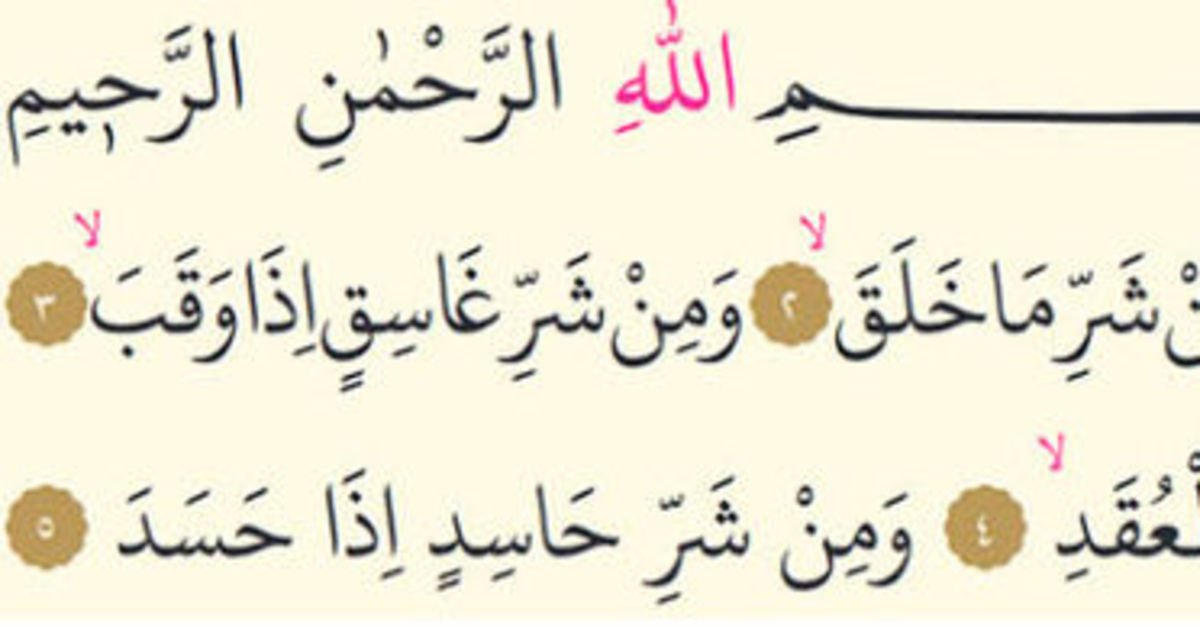 ـمِ اللّٰهِ الرَّحْمٰنِ الرَّحٖيمِ
ـنْ شَرِّ مَا خَلَقَۙ ٢ وَمِنْ شَرِّ غَاسِقٍ اِذَا وَقَبَۙ ٣
ـلْعُقَدِۙ ٤ وَمِنْ شَرِّ حَاسِدٍ اِذَا حَسَدَ ٥